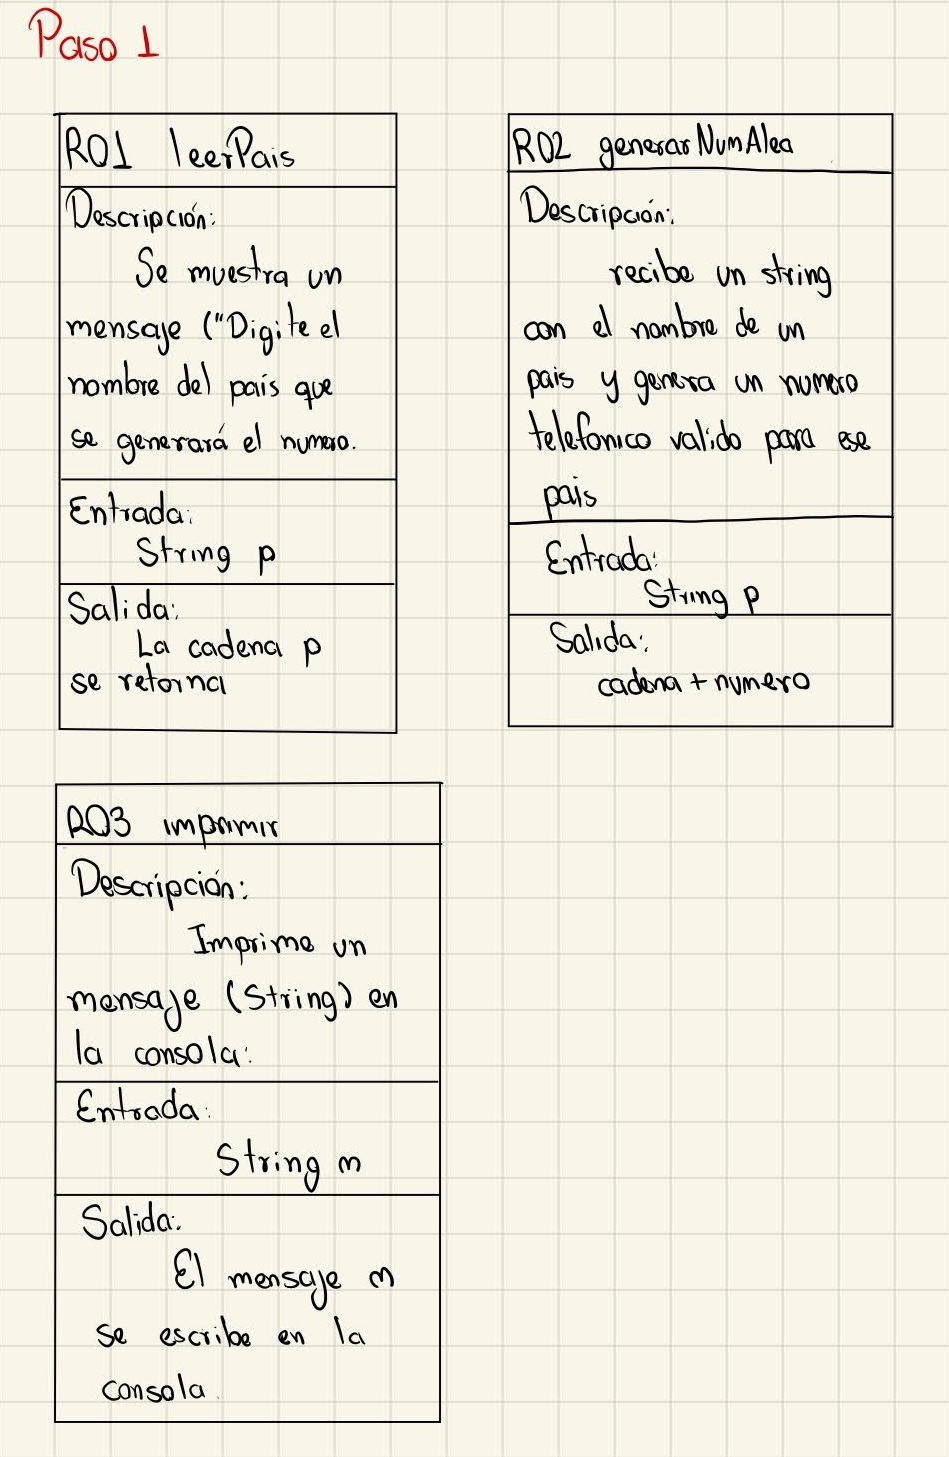 Paso 1
R01 leerPais
Descripción:
Se muestra un
mensaje ("Digite el
nombre del país que
se generará el numero.
Entrada:
String p
Salida:
La cadena p
se retorna
R02 generarNumAlea
Descripción:
recibe un string
con el nombre de un
pais y genera un numero
telefonico valido para ese
pais
Entrada:
String p
Salida:
cadena + numero
R03 imprimir
Descripción:
Imprime un
mensaje (String) en
la consola:
Entrada:
String m
Salida:
El mensaje m
se escribe en la
consola.